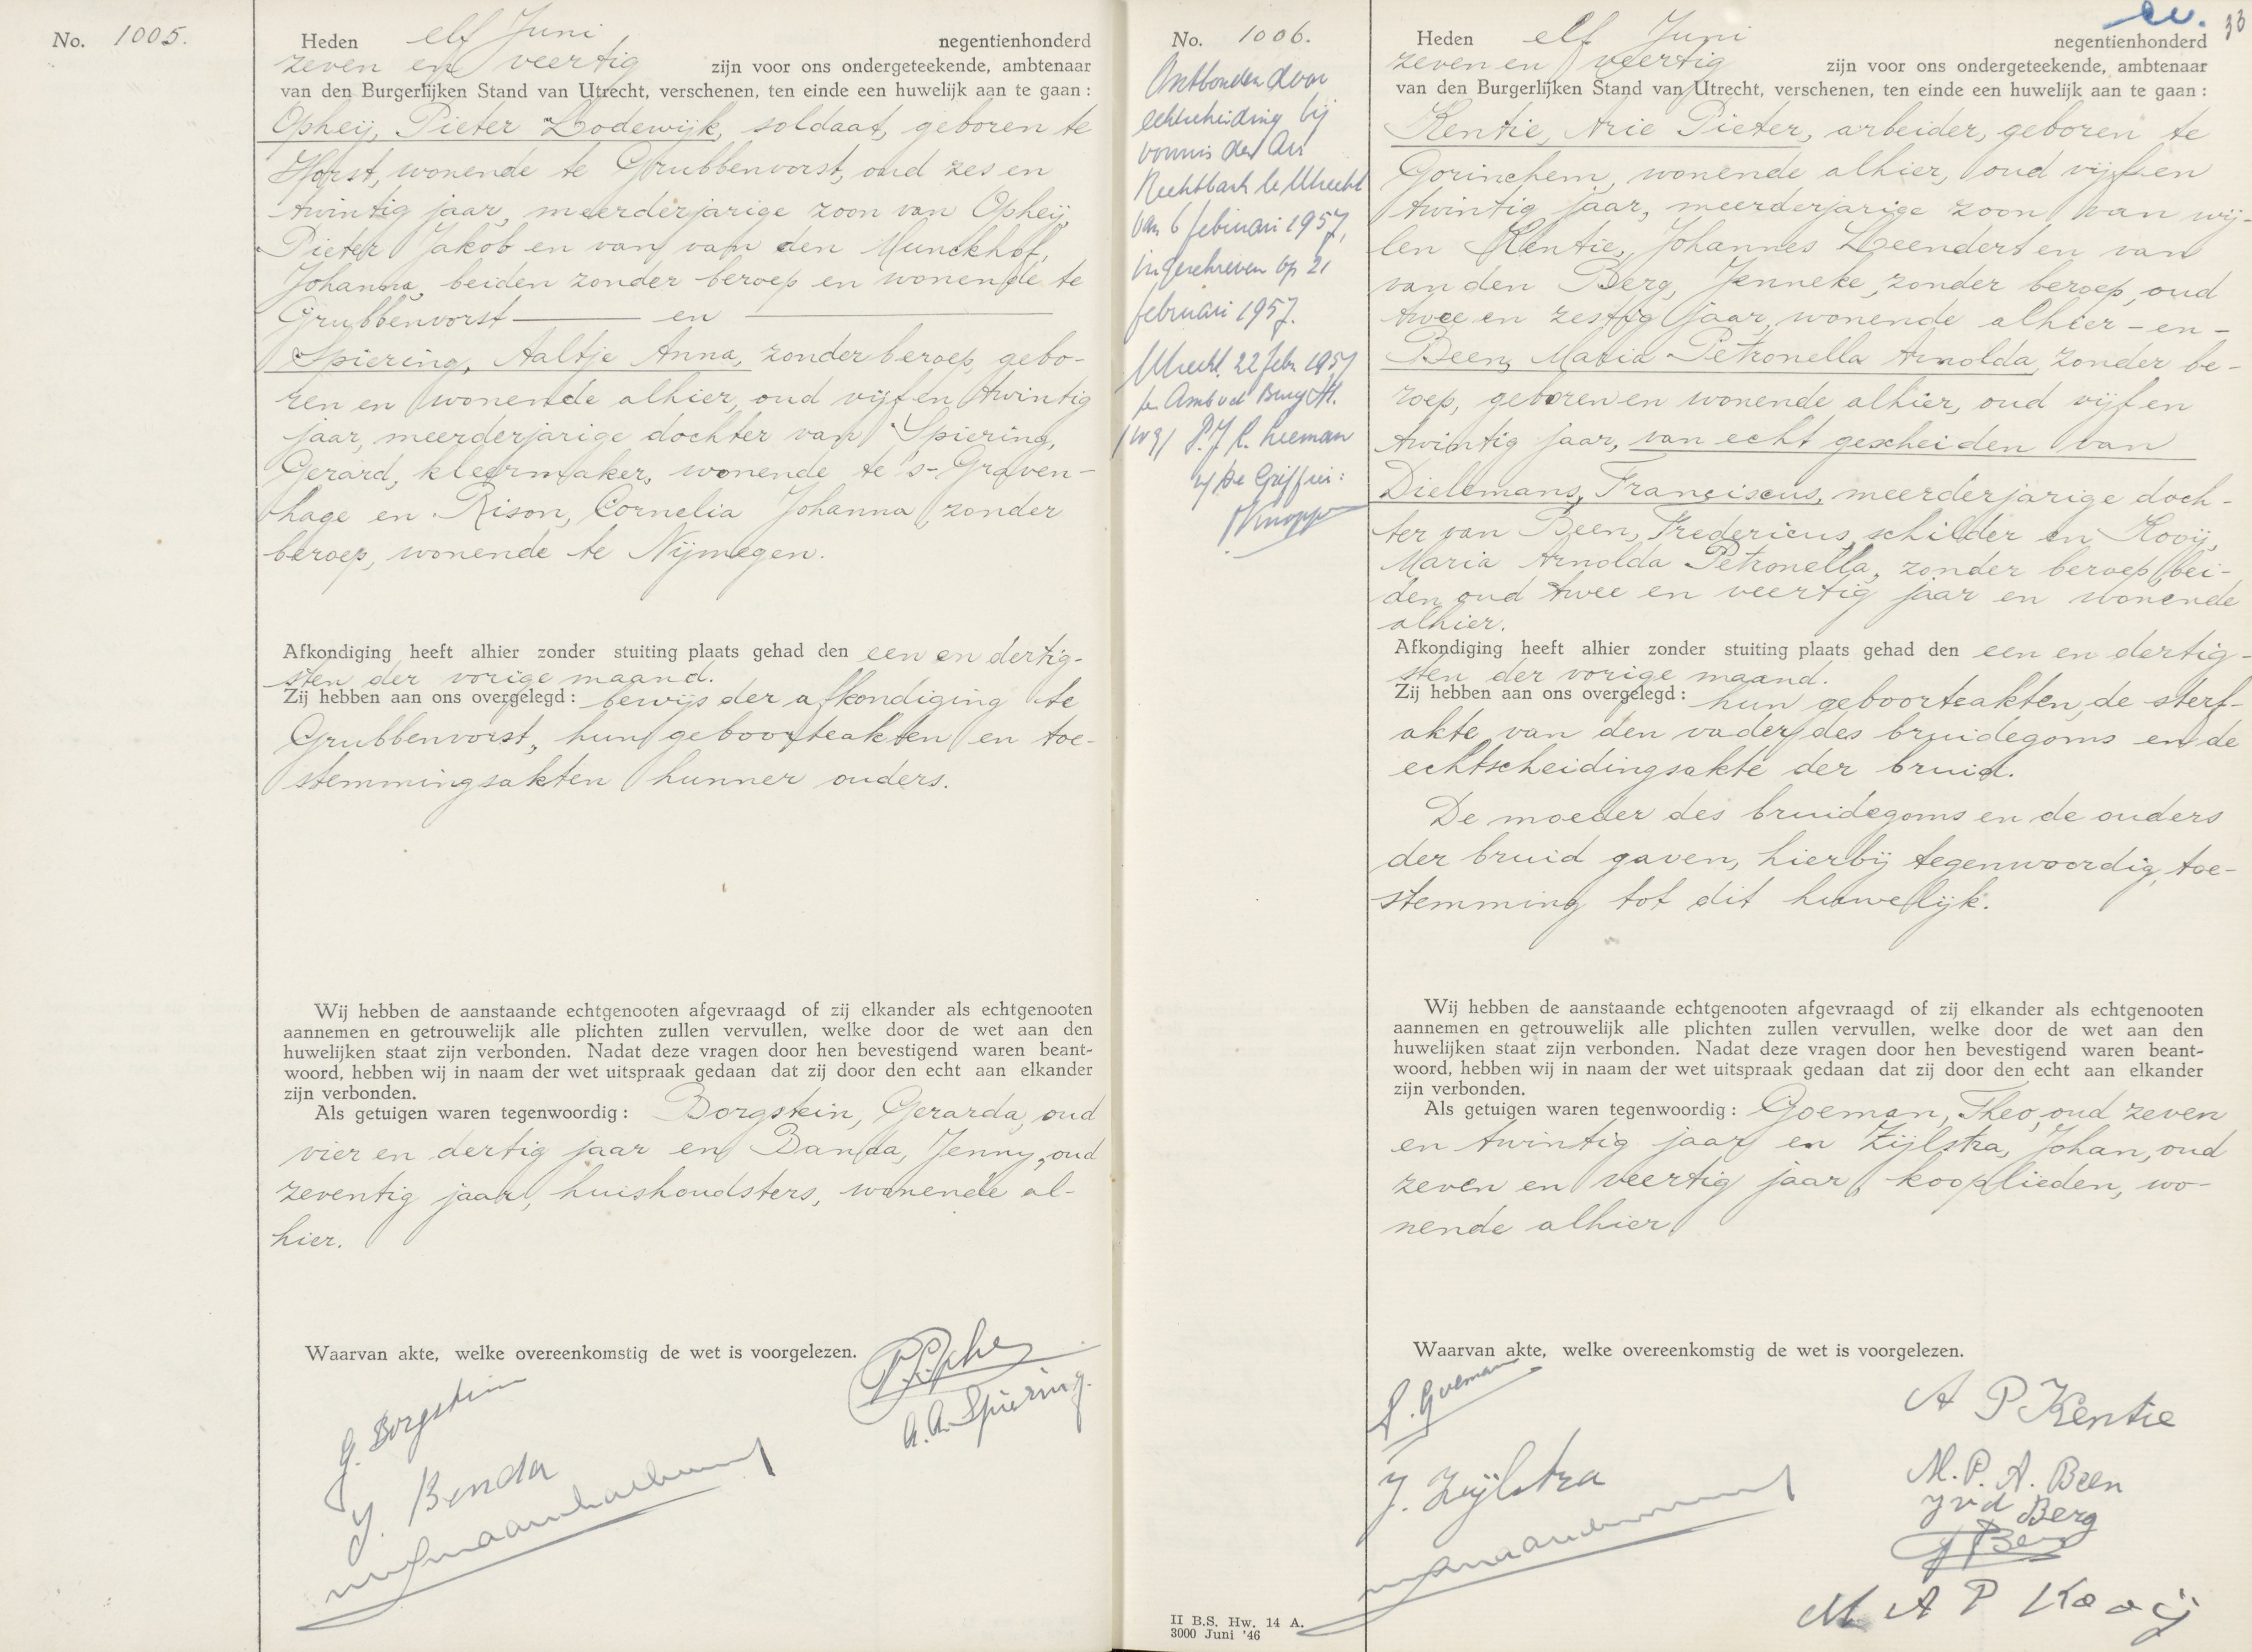 No. 1005.
Heden elf Juni negentienhonderd
zeven en veertig zijn voor ons ondergeteekende, ambtenaar
van den Burgerlijken Stand van Utrecht, verschenen, ten einde een huwelijk aan te gaan:
Opheij, Pieter Lodewijk, soldaat, geboren te
Horst, wonende te Grubbenvorst, oud zes en
twintig jaar, meerderjarige zoon van Opheij,
Pieter Jakob en van van den Munckhof,
Johanna, beiden zonder beroep en wonende te
Grubbenvorst — en —
Spiering, Aaltje Anna, zonder beroep, gebo-
ren en wonende alhier, oud vijf en twintig
jaar, meerderjarige dochter van Spiering,
Gerard, kleermaker, wonende te 's-Graven-
hage en Rison, Cornelia Johanna, zonder
beroep, wonende te Nijmegen.
Afkondiging heeft alhier zonder stuiting plaats gehad den een en dertig-
sten der vorige maand.
Zij hebben aan ons overgelegd: bewijs der afkondiging te
Grubbenvorst, hun geboorteakten en toe-
stemmingsakten hunner ouders.
Wij hebben de aanstaande echtgenooten afgevraagd of zij elkander als echtgenooten
aannemen en getrouwelijk alle plichten zullen vervullen, welke door de wet aan den
huwelijken staat zijn verbonden. Nadat deze vragen door hen bevestigend waren beant-
woord, hebben wij in naam der wet uitspraak gedaan dat zij door den echt aan elkander
zijn verbonden.
Als getuigen waren tegenwoordig: Borgstein, Gerarda, oud
vier en dertig jaar en Banda, Jenny, oud
zeventig jaar, huishoudsters, wonende al-
hier.
Waarvan akte, welke overeenkomstig de wet is voorgelezen.
G. Borgstein
A.A. Spiering.
J. Benda
No. 1006.
Ontbonden door
echtscheiding bij
vonnis der Arr
Rechtbank te Utrecht
van 6 februari 1957,
ingeschreven op 21
februari 1957.
Utrecht 22 febr. 1957
(wg) P.J.C. Leeman
De Griffier:
ev.
33
Heden elf Juni negentienhonderd
zeven en veertig zijn voor ons ondergeteekende, ambtenaar
van den Burgerlijken Stand van Utrecht, verschenen, ten einde een huwelijk aan te gaan:
Kentie, Arie Pieter, arbeider, geboren te
Gorinchem, wonende alhier, oud vijf en
twintig jaar, meerderjarige zoon van wij-
len Kentie, Johannes Leendert en van
van den Berg, Jenneke, zonder beroep, oud
twee en zestig jaar, wonende alhier - en -
Been, Maria Petronella Arnolda, zonder be-
roep, geboren en wonende alhier, oud vijf en
twintig jaar, van echt gescheiden van
Dielemans, Franciscus, meerderjarige doch-
ter van Been, Fredericus, schilder en Kooij,
Maria Arnolda Petronella, zonder beroep, bei-
den oud twee en veertig jaar en wonende
alhier.
Afkondiging heeft alhier zonder stuiting plaats gehad den een en dertig-
sten der vorige maand.
Zij hebben aan ons overgelegd: hun geboorteakten, de sterf-
akte van den vader des bruidegoms en de
echtscheidingsakte der bruid.
De moeder des bruidegoms en de ouders
der bruid gaven, hierbij tegenwoordig, toe-
stemming tot dit huwelijk.
Wij hebben de aanstaande echtgenooten afgevraagd of zij elkander als echtgenooten
aannemen en getrouwelijk alle plichten zullen vervullen, welke door de wet aan den
huwelijken staat zijn verbonden. Nadat deze vragen door hen bevestigend waren beant-
woord, hebben wij in naam der wet uitspraak gedaan dat zij door den echt aan elkander
zijn verbonden.
Als getuigen waren tegenwoordig: Goeman, Theo, oud zeven
en twintig jaar en Zijlstra, Johan, oud
zeven en veertig jaar, kooplieden, wo-
nende alhier
Waarvan akte, welke overeenkomstig de wet is voorgelezen.
T. Goeman
A P Kentie
J. Zijlstra
M.P.A. Been
J v d Berg
F Been
M A P Kooij
II B.S. Hw. 14 A.
3000 Juni '46